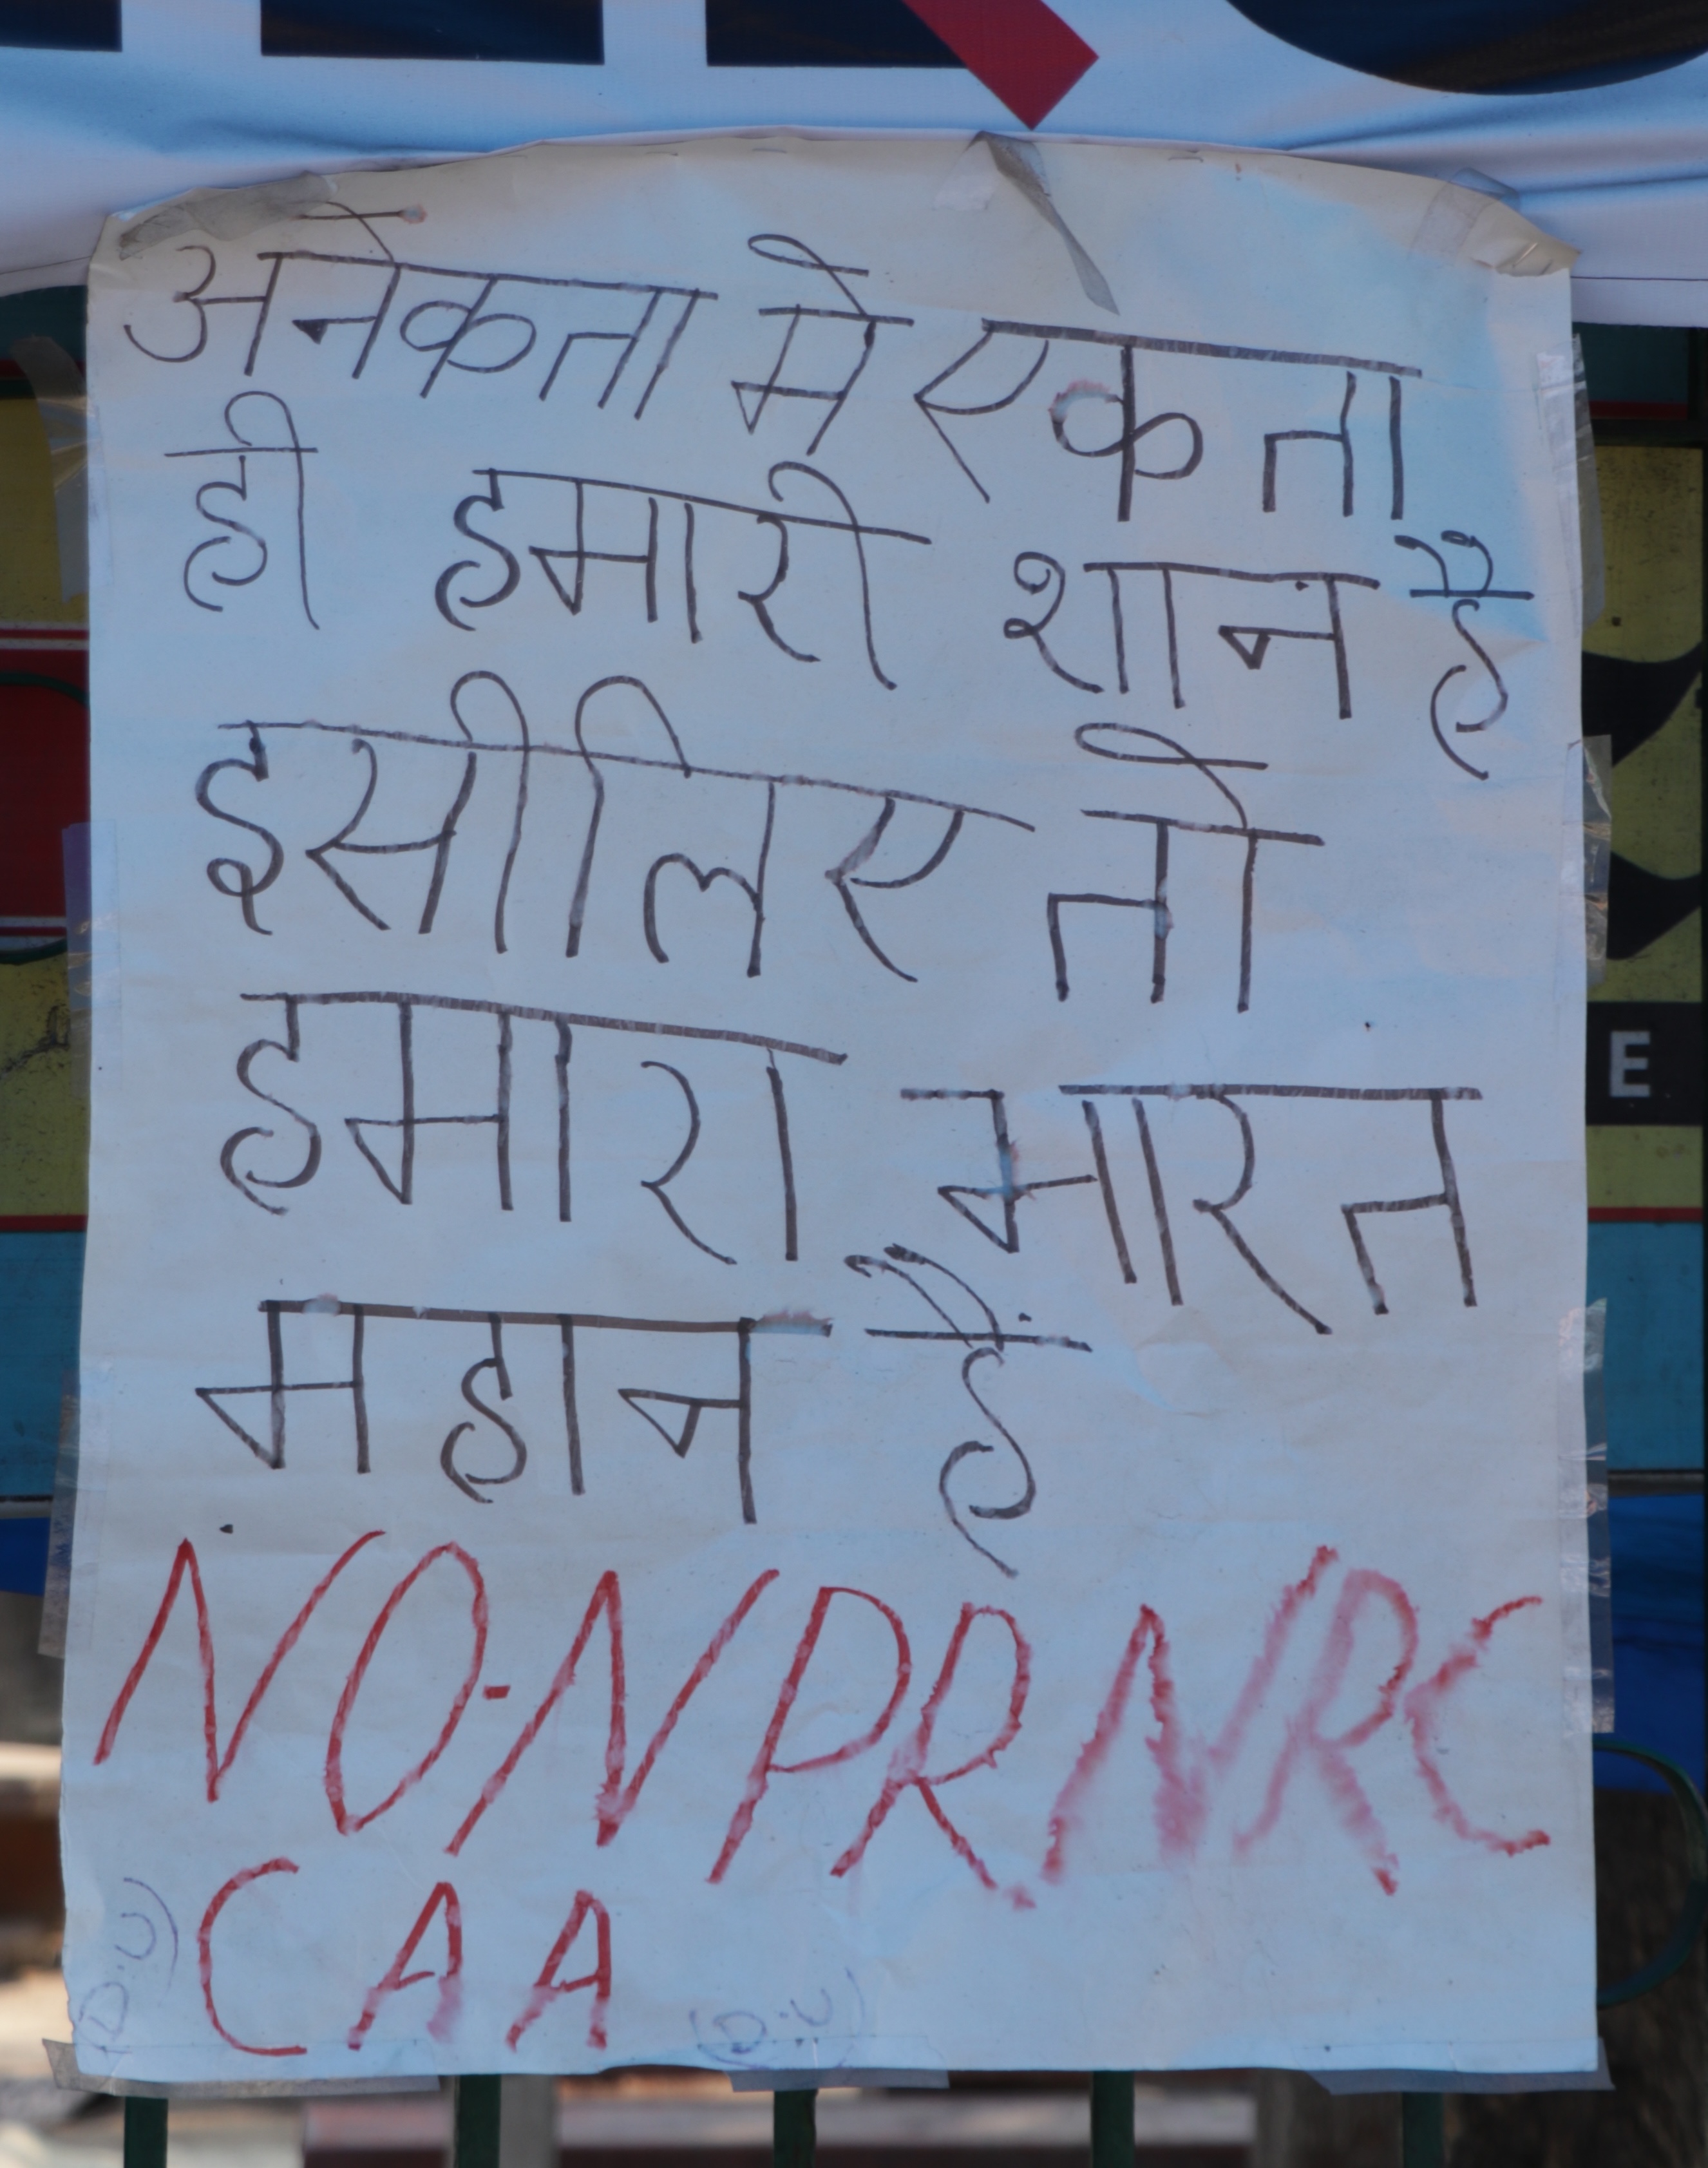 अनेकता मे एकता
ही हमारी शान है
इसीलिए तो
हमारा भारत
महान है
NO-NPR NRC
CAA
(D.U)
(D.U)
E